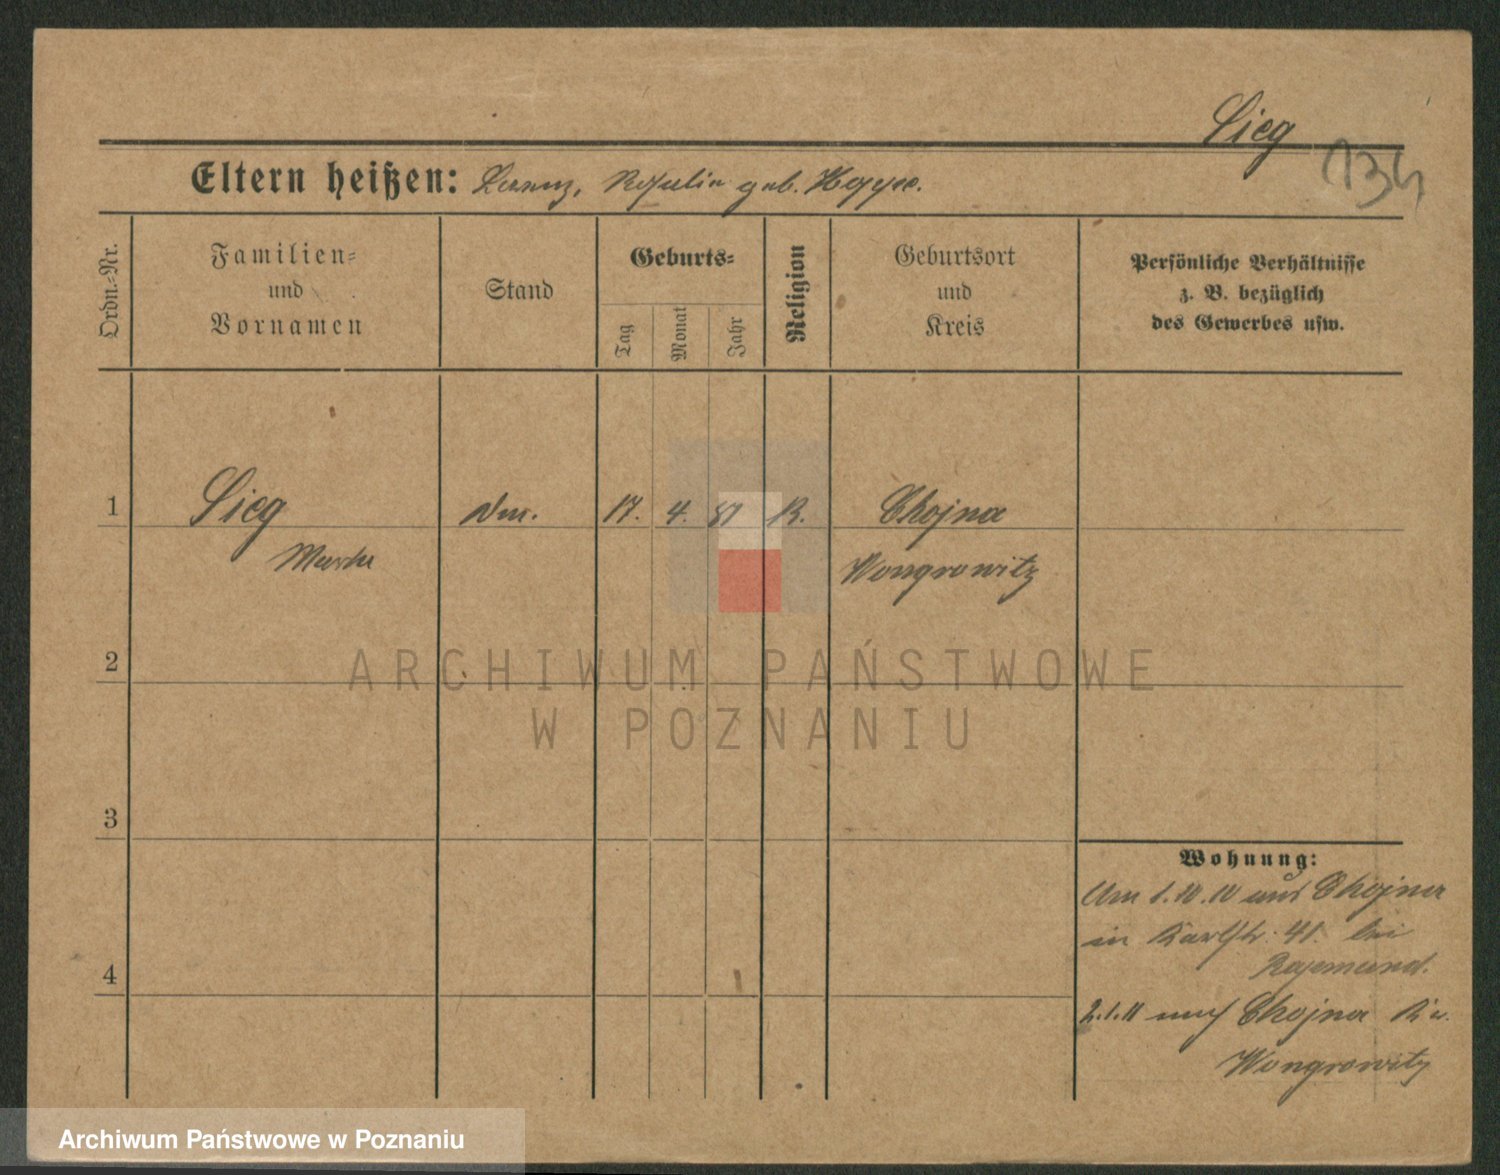 Sieg
134
Eltern heißen: Lorenz, Rosalie geb. Hoppe.
Ordn.-Nr.
Familien-
und
Vornamen
Stand
Geburts-
Tag
Monat
Jahr
Religion
Geburtsort
und
Kreis
Persönliche Verhältnisse
z. B. bezüglich
des Gewerbes usw.
1
Sieg
17. 4. 87
Chojna
Wongrowitz
2
ARCHIWUM PAŃSTWOWE
W POZNANIU
3
4
Wohnung:
Am 1.10.10 aus Chojna
in Karlstr. 41. bei
2.1.11 nach Chojna Kr.
Wongrowitz
Archiwum Państwowe w Poznaniu